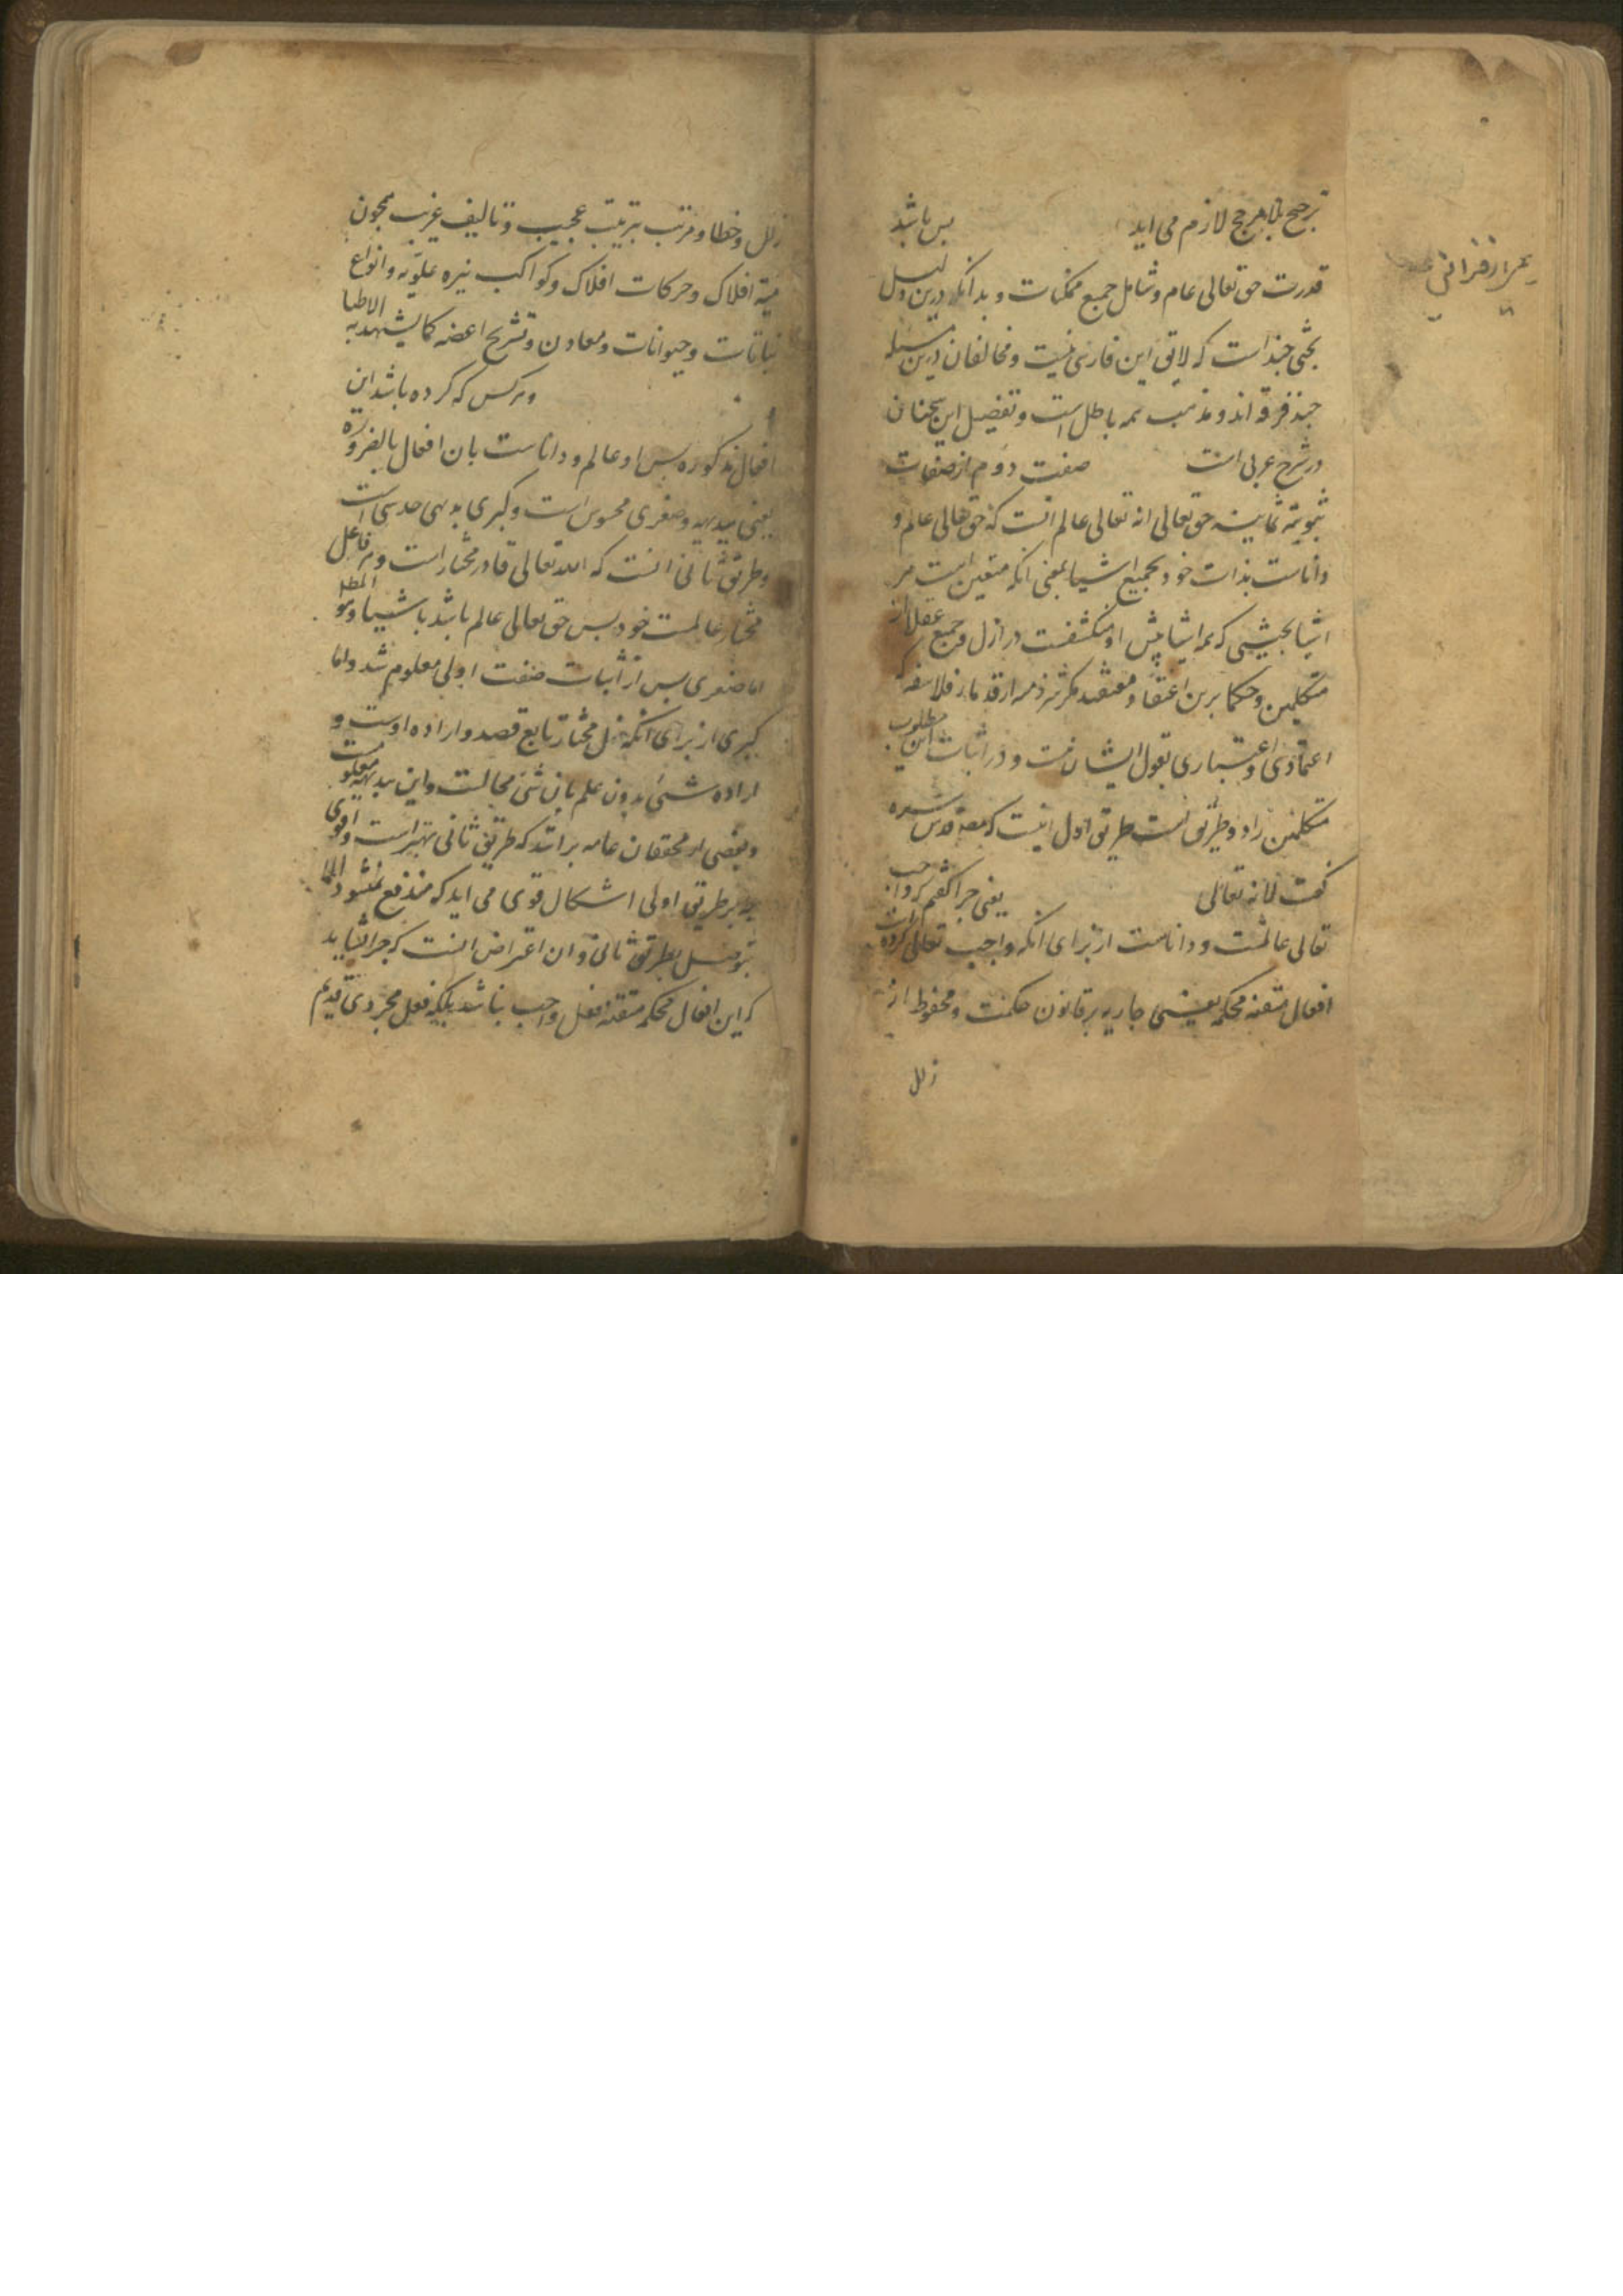 ترجیح بلا مرجح لازم می اید پس باشد
قدرت حق تعالی عام و شامل جمیع ممکنات و بدانکه درین دلیل
بحثی چند است که لایق این فارسی نیست و مخالفان درین مسئله
چند فرقه اند و مذهب همه باطل است و تفصیل این سخنان
در شرح عربی است صفت دوم از صفات
ثبوتیه ثمانیه حق تعالی انه تعالی عالم انست که حق تعالی عالم و
داناست بذات خود و بجمیع اشیا بمعنی انکه متعین است مر
اشیا بحیثیتی که همه اشیا پیش او منکشفست در ازل و جمیع عقلا از
متکلمین و حکما برین اعتقاد و معتقد مگر شرذمه از قدماء فلاسفه که
اعتمادی و اعتباری بقول ایشان نیست و در اثبات این مطلوب
متکلمین را دو طریق است طریق اول اینست که مصه قدس سره
گفت لانه تعالی یعنی چرا گفتم که واجب
تعالی عالمست و داناست از برای انکه واجب تعالی کرده است
افعال متقنه محکمه یعنی جاریه بر قانون حکمت و محفوظ از
زلل
زلل و خطا و مرتب بترتیب عجیب و تالیف غریب همچون
هیئة افلاک و حرکات افلاک و کواکب نیره علویه و انواع
نباتات و حیوانات و معادن و تشریح اعضه کما یشهد به الاطبا
و هرکس که کرده باشد این
افعال مذکوره پس او عالم و داناست بان افعال بالضروره
یعنی بدیهیه و صغری محسوس است و کبری بدیهی حدسی است
و طریق ثانی انست که الله تعالی قادر مختار است و هر فاعل
مختار عالمست خود پس حق تعالی عالم باشد باشیا و هو المطلو
اما صغری پس از اثبات صفت اولی معلوم شد و اما
کبری از برای انکه فعل مختار تابع قصد و اراده اوست و
اراده شئ بدون علم بان شئ محالست و این ببدیهه معلومست
و بعضی از محققان عامه برانند که طریق ثانی بهتر است و اقوی
چه بر طریق اولی اشکال قوی می اید که مندفع نمیشود الا
بتوسل بطریق ثانی و ان اعتراض انست که چرا نشاید
که این افعال محکمه متقنه فعل واجب نباشد بلکه فعل مجردی قدیم